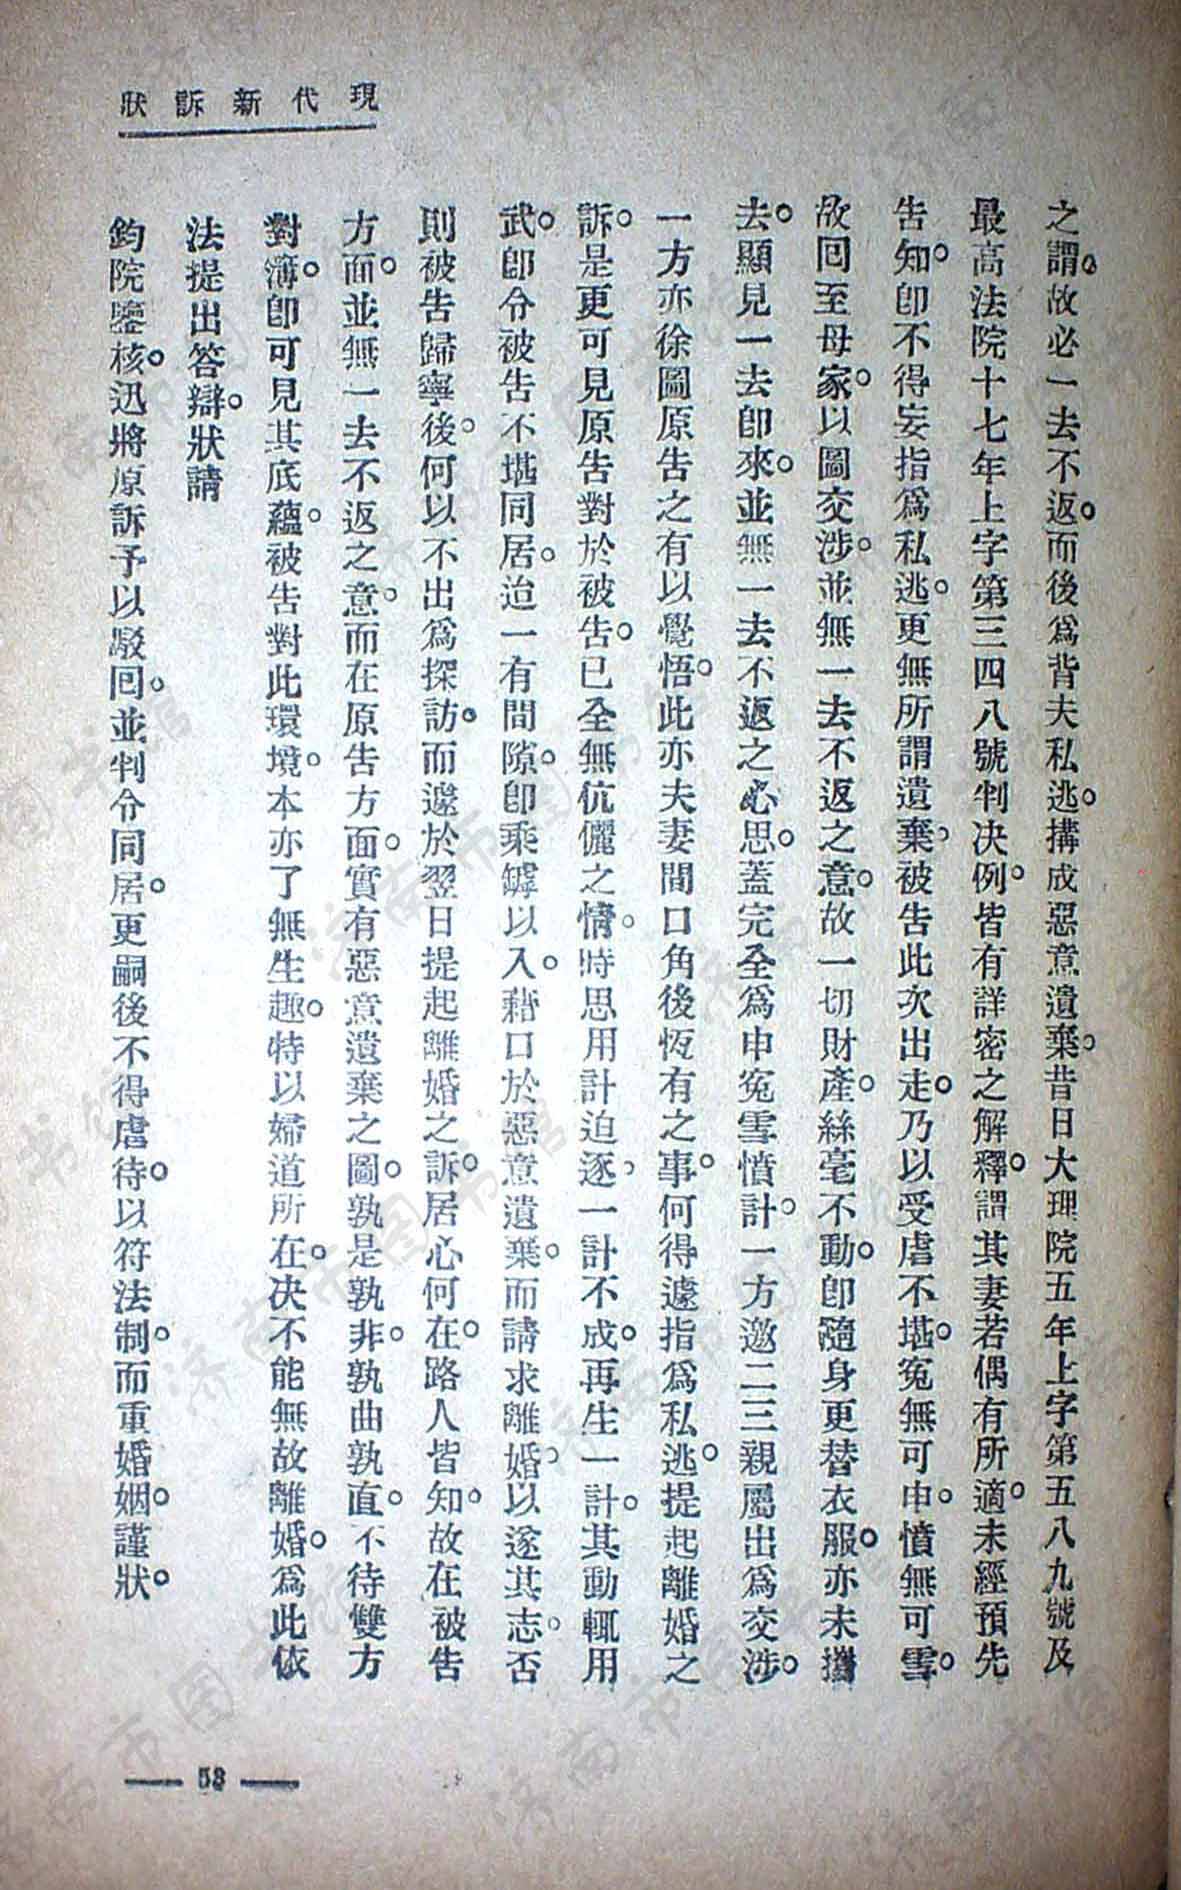 現代新訴狀
之謂。故必一去不返。而後爲背夫私逃。搆成惡意遺棄。昔日大理院五年上字第五八九號及
最高法院十七年上字第三四八號判决例。皆有詳密之解釋。謂其妻若偶有所適。未經預先
告知。卽不得妄指爲私逃。更無所謂遺棄。被告此次出走。乃以受虐不堪。寃無可申。憤無可雪。
故回至母家。以圖交涉。並無一去不返之意。故一切財產。絲毫不動。卽隨身更替衣服。亦未攜
去。顯見一去卽來。並無一去不返之心思。蓋完全爲申寃雪憤計。一方邀二三親屬出爲交涉。
一方亦徐圖原告之有以覺悟。此亦夫妻間口角後恆有之事。何得遽指爲私逃。提起離婚之
訴。是更可見原告對於被告。已全無伉儷之情。時思用計迫逐。一計不成。再生一計。其動輒用
武。卽令被告不堪同居。迨一有間隙。卽乘罅以入。藉口於惡意遺棄。而請求離婚。以遂其志。否
則被告歸寧後。何以不出爲探訪。而遽於翌日提起離婚之訴。居心何在。路人皆知。故在被告
方面。並無一去不返之意。而在原告方面。實有惡意遺棄之圖。孰是孰非。孰曲孰直。不待雙方
對簿。卽可見其底蘊。被告對此環境。本亦了無生趣。特以婦道所在。决不能無故離婚。爲此依
法提出答辯。狀請
鈞院鑒核。迅將原訴予以駁回。並判令同居。更嗣後不得虐待。以符法制。而重婚姻。謹狀。
53
济南市图书馆